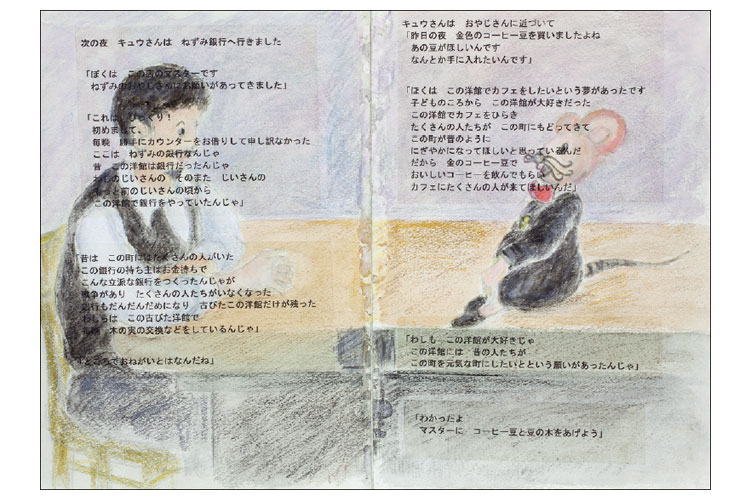 次の夜　キュウさんは　ねずみ銀行へ行きました
「ぼくは　この店のマスターです
ねずみのおやじさんにお願いがあってきました」
「これは　びっくり！
初めまして、
毎晩　勝手にカウンターをお借りして申し訳なかった
ここは　ねずみの銀行なんじゃ
昔　この洋館は銀行だったんじゃ
わしのじいさんの　そのまた　じいさんの
もっと前のじいさんの頃から
この洋館で銀行をやっていたんじゃ」
「昔は　この町にはたくさんの人がいた
この銀行の持ち主はお金持ちで
こんな立派な銀行をつくったんじゃが
戦争があり　たくさんの人たちがいなくなった
銀行もだんだんだめになり　古びたこの洋館だけが残った
わしらは　この古びた洋館で
毎晩　木の実の交換などをしているんじゃ」
「ところでおねがいとはなんだね」
キュウさんは　おやじさんに近づいて
「昨日の夜　金色のコーヒー豆を買いましたよね
あの豆がほしいんです
なんとか手に入れたいんです」
「ぼくは　この洋館でカフェをしたいという夢があったです
子どものころから　この洋館が大好きだった
この洋館でカフェをひらき
たくさんの人たちが　この町にもどってきて
この町が昔のように
にぎやかになってほしいと思っているんだ
だから　金のコーヒー豆で
おいしいコーヒーを飲んでもらい
カフェにたくさんの人が来てほしいんだ」
「わしも　この洋館が大好きじゃ
この洋館には　昔の人たちが
この町を元気な町にしたいとという願いがあったんじゃ」
「わかったよ
マスターに　コーヒー豆と豆の木をあげよう」